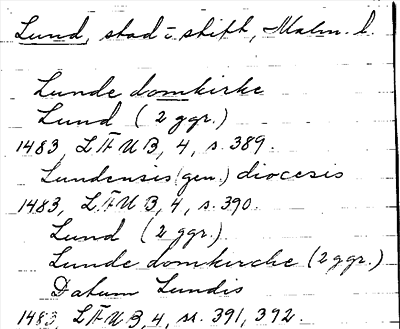 Lund, stad o. stift, Malm. l.
Lunde domkirke
Lund (2 ggr.)
1483 LÄUB, 4, s. 389.
Lundensis (gen.) diocesis
1483, LÄUB, 4, s. 390.
Lund (2 ggr.)
Lunde domkirche (2 ggr.)
Datum Lundis
1483, LÄUB, 4, ss. 391, 392.